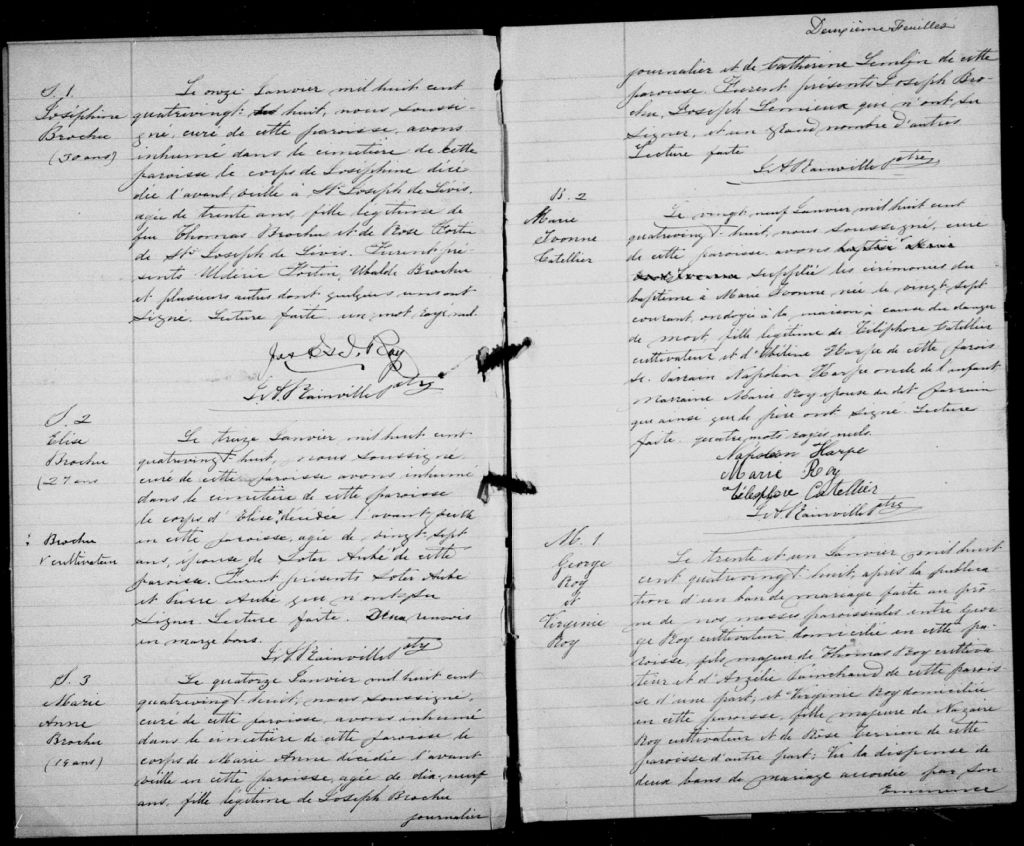 S. 1
Joséphine
Brochu
(30 ans)
Le onze Janvier mil huit cent
quatrevingt huit, nous soussi-
gné, curé de cette paroisse, avons
inhumé dans le cimetière de cette
paroisse le corps de Joséphine décé
dée l'avant veille à St Joseph de Lévis,
agée de trente ans, fille légitime de
feu Thomas Brochu et de Rose Fortin
de St Joseph de Lévis. Furent pré-
sents Ulderic Fortin, Ubalde Brochu
et plusieurs autres dont quelques uns ont
signé. Lecture faite un mot rayé nul.
Roy
L. A. Rainville Ptre
S. 2
Elise
Brochu
(27 ans
: Brochu
V cultivateur
Le treize Janvier mil huit cent
quatrevingt huit, nous soussigné
curé de cette paroisse avons inhumé
dans le cimetière de cette paroisse
le corps d'Elise décédée l'avant veille
en cette paroisse, agée de vingt sept
ans, épouse de Soter Aubé de cette
paroisse. Furent présents Soter Aubé
et Pierre Aubé qui n'ont su
signer. Lecture faite. Deux renvois
en marge bons.
L. A. Rainville Ptre
S. 3
Marie
Anne
Brochu
(19 ans)
Le quatorze Janvier mil huit cent
quatrevingt huit, nous soussigné,
curé de cette paroisse, avons inhumé
dans le cimetière de cette paroisse le
corps de Marie Anne décédée l'avant
veille en cette paroisse, agée de dix-neuf
ans, fille légitime de Joseph Brochu
journalier
Deuxième Feuillet
journalier et de Catherine Lemlin de cette
paroisse. Furent présents Joseph Bro-
chu, Joseph Lemieux qui n'ont su
signer, et un grand nombre d'autres
Lecture faite
L. A. Rainville Ptre
B. 2
Marie
Yvonne
Catellier
Le vingt neuf Janvier mil huit cent
quatrevingt huit, nous soussigné, curé
de cette paroisse avons baptisé
suppléé les cérémonies du
baptême à Marie Yvonne née le vingt sept
courant, ondoyée à la maison à cause du danger
de mort, fille légitime de Télesphore Catellier
cultivateur et d'Obéline Harpe de cette parois
se. Parrain Napoléon Harpe oncle de l'enfant
Marraine Marie Roy épouse du dit parrain
qui ainsi que le père ont signé. Lecture
faite. quatre mots rayés nuls.
Napoléon Harpe
Marie Roy
Télesphore Catellier
L. A. Rainville Ptre
M. 1.
George
Roy
et
Virginie
Roy
Le trente et un Janvier mil huit
cent quatrevingt huit, après la publica
tion d'un ban de mariage faite au prô-
ne de nos messes paroissiales entre Geor
ge Roy cultivateur domicilié en cette pa-
roisse, fils majeur de Thomas Roy cultiva
teur et d'Arzélie Painchaud de cette parois
se d'une part, et Virginie Roy domiciliée
en cette paroisse, fille majeure de Nazaire
Roy cultivateur et de Rose Terrien de cette
paroisse d'autre part; Vu la dispense de
deux bans de mariage accordée par Son
Eminence